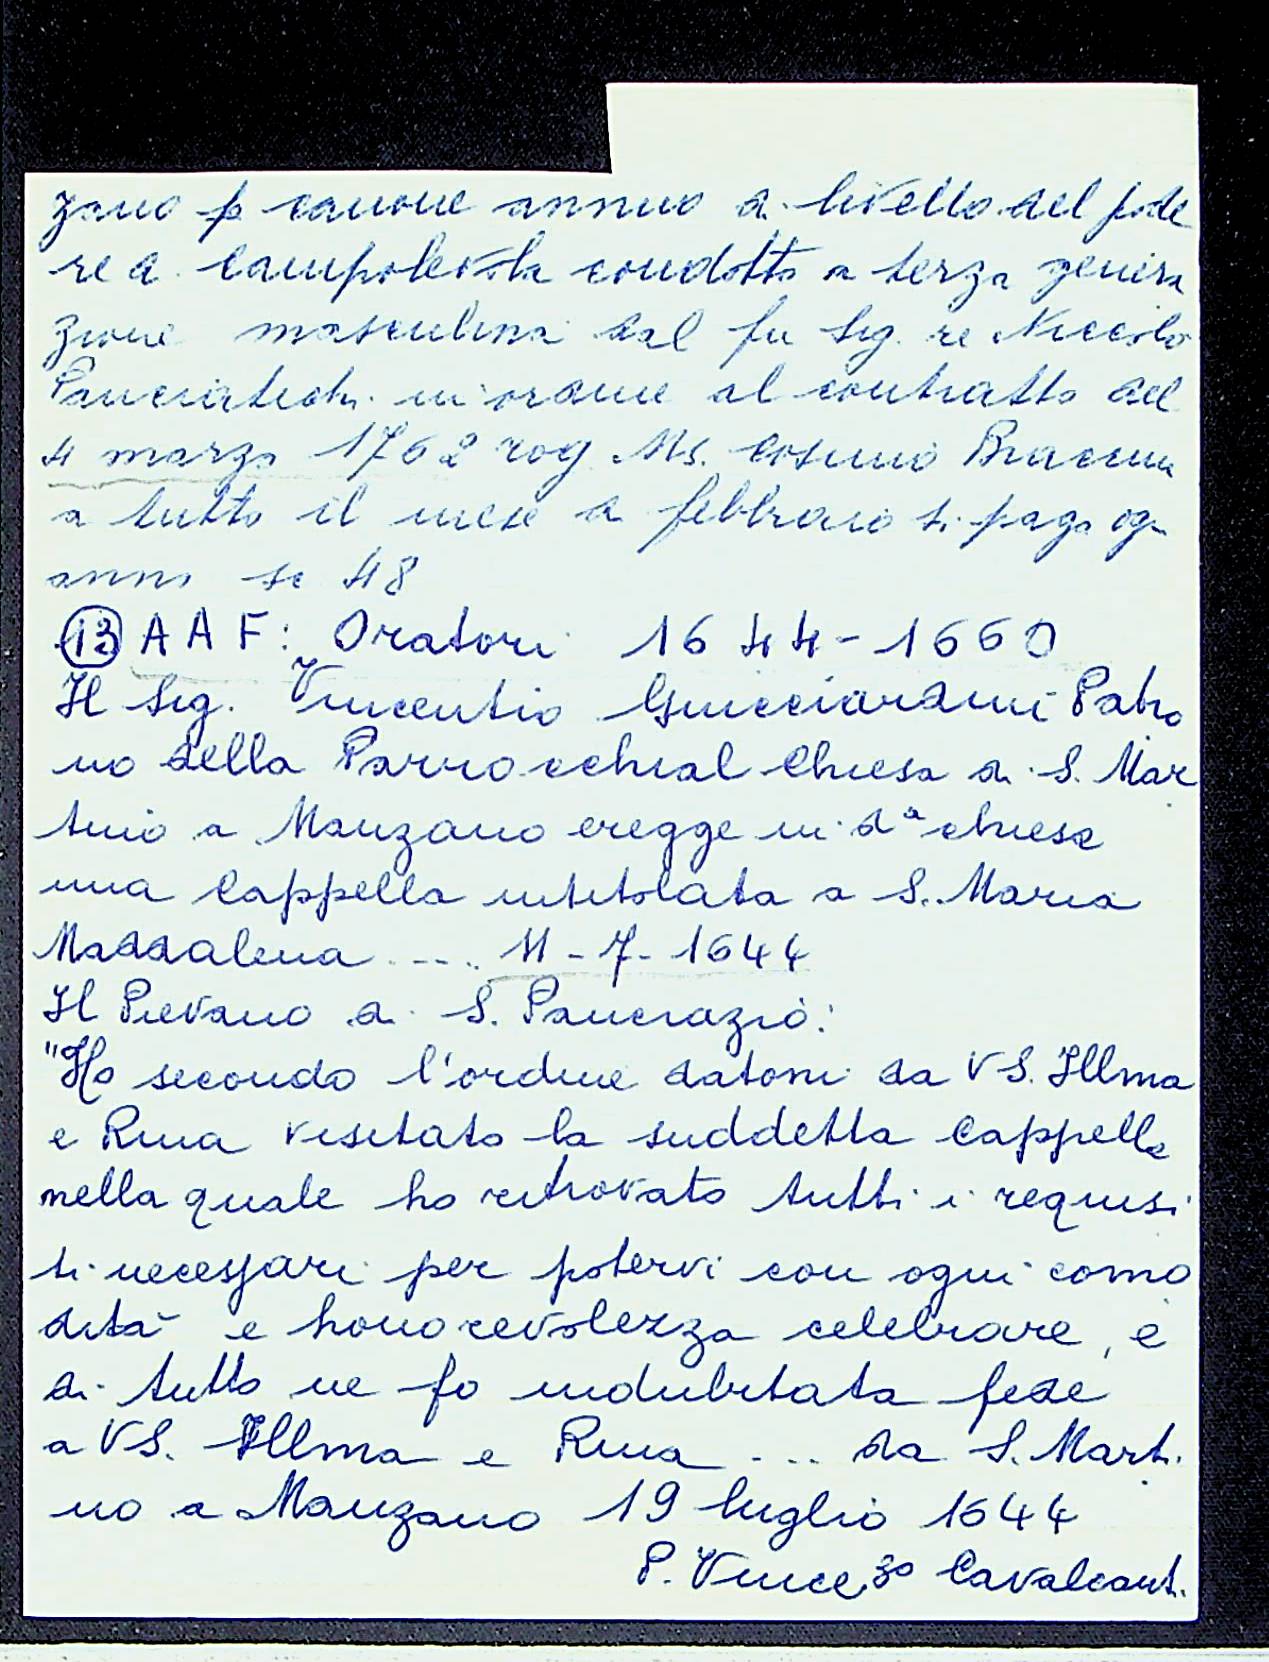 zano p canone annuo di livello del pode
re di Campolevola condotto a terza genera
zione masculina dal fu Sig. re Niccolo
Panciatichi in ordine al contratto del
4 marzo 1762 rog Ms. Cosimo Braccini
a tutto il mese di febbraio si paga og
anno sc 48
(13) AAF: Oratori 1644-1660
Il Sig. Vincentio Guicciardini Patro
no della Parrocchial Chiesa di S. Mar
tino a Manzano eregge in dª chiesa
una Cappella intitolata a S. Maria
Maddalena .... 11-7-1644
Il Pievano di S. Pancrazio:
"Ho secondo l'ordine datomi da VS. Illma
e Rma visitato la suddetta Cappella
nella quale ho ritrovato tutti i requisi
ti necessari per potervi con ogni como
dità e honorevolezza celebrare, e
di tutto ne fo indubitata fede
a VS. Illma e Rma ... da S. Marti
no a Manzano 19 luglio 1644
P. Vince.zo Cavalcanti